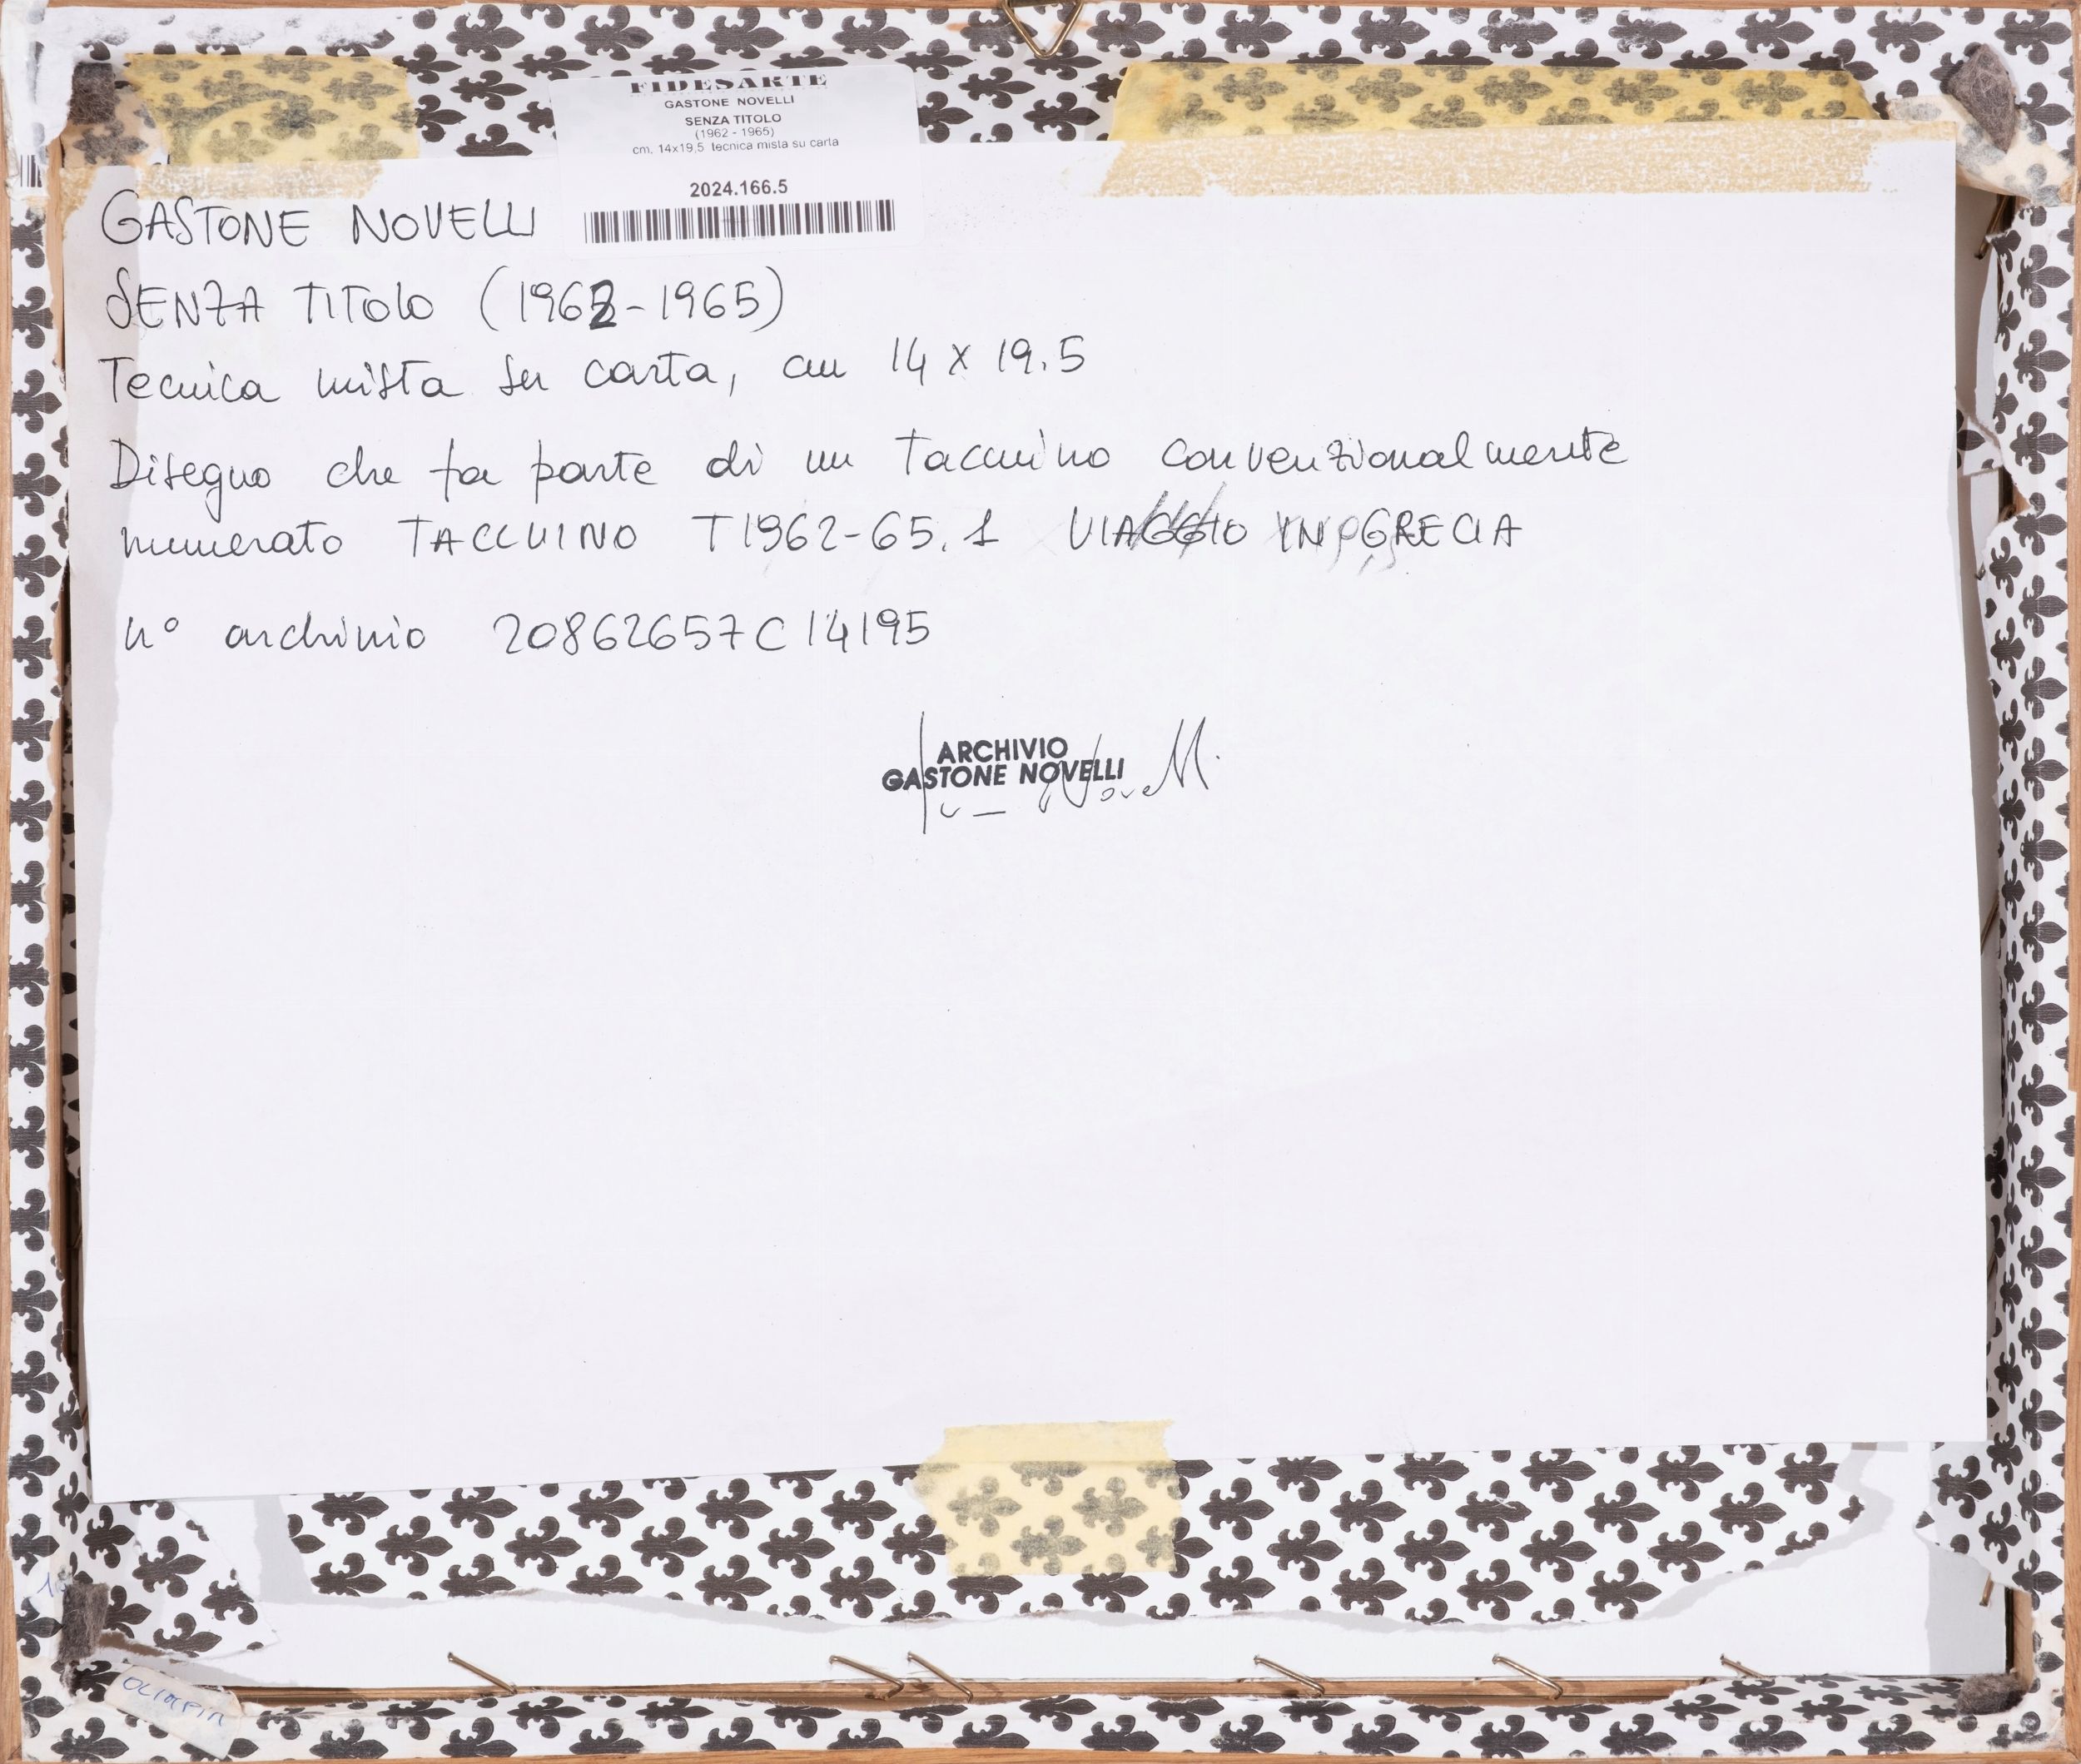 FIDESARTE
GASTONE NOVELLI
SENZA TITOLO
(1962 - 1965)
cm. 14x19,5 tecnica mista su carta
2024.166.5
GASTONE NOVELLI
SENZA TITOLO (1962-1965)
Tecnica mista su carta, cm 14 x 19.5
Disegno che fa parte di un taccuino convenzionalmente
numerato TACCUINO T1962-65.1 VIAGGIO IN GRECIA
n° archivio 20862657C14195
ARCHIVIO
GASTONE NOVELLI
Novelli